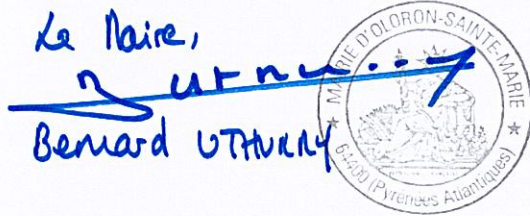 Le Maire,
Bernard UTHURRY
MAIRIE D'OLORON-SAINTE-MARIE
64400 (Pyrénées Atlantiques)